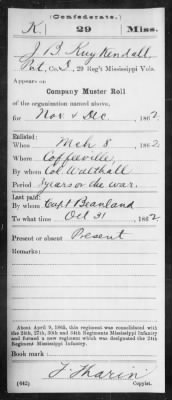 (Confederate.)
K. 29 Miss.
J. B. Kuykendall,
Pvt., Co. I, 29 Reg't Mississippi Vols.
Appears on
Company Muster Roll
of the organization named above,
for Nov & Dec, 1862
Enlisted:
When Mch 8, 1862
Where Coffeeville,
By whom Col Walthall
Period 3 years or the war.
Last paid:
By whom Capt Beanland
To what time Oct 31, 1862
Present or absent Present
Remarks:
About April 9, 1865, this regiment was consolidated with
the 24th, 27th, 30th and 34th Regiments Mississippi Infantry
and formed a new regiment which was designated the 24th
Regiment Mississippi Infantry.
Book mark:
F. Tharin
(642) Copyist.